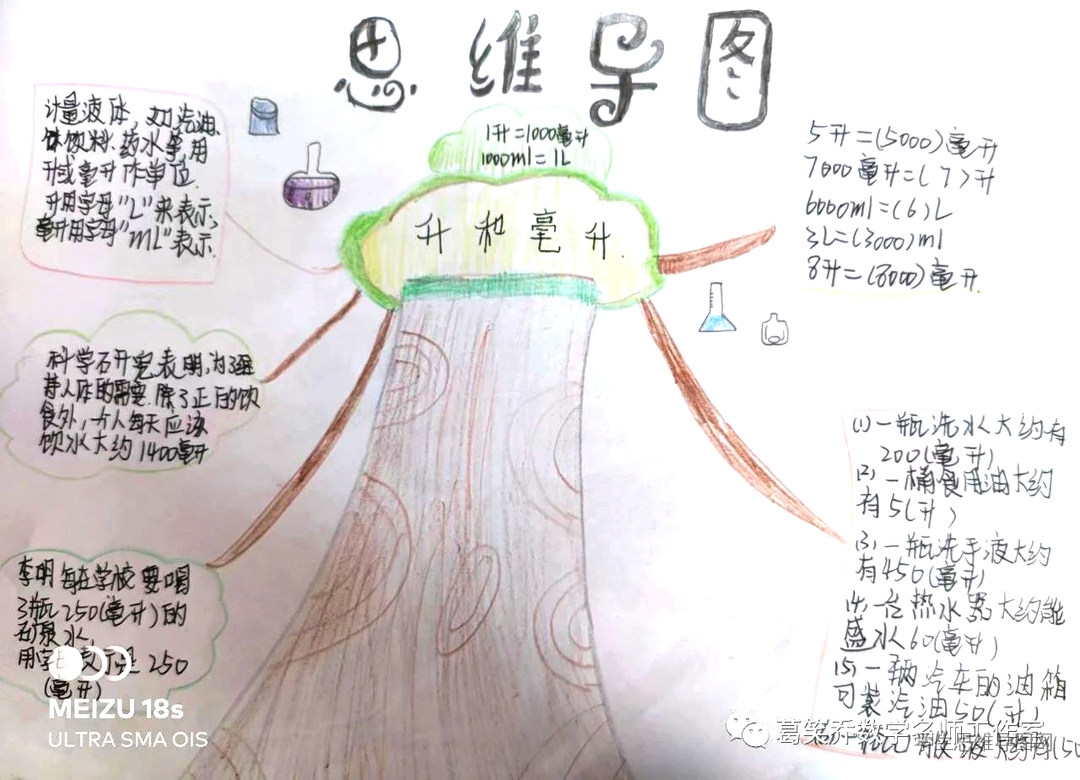 思维导图
1升=1000毫升
1000ml=1L
升和毫升.
计量液体，如汽油、
饮料、药水等用
升或毫升作单位.
升用字母"L"来表示，
毫升用字母"mL"表示.
科学研究表明，为了维
持人体的需要.除了正常的饮
食外，个人每天应该
饮水大约1400毫升
李明每在学校要喝
3瓶250(毫升)的
矿泉水，
250
(毫升)
5升=(5000)毫升
7000毫升=(7)升
6000ml=(6)L
3L=(3000)ml
8升=(8000)毫升.
(1)一瓶洗水大约有
200(毫升)
(2)一桶食用油大约
有5(升)
(3)一瓶洗手液大约
有450(毫升)
(4)一台热水器大约能
盛水60(毫升)
(5)一辆汽车的油箱
可装汽油50(升)
MEIZU 18s
ULTRA SMA OIS
葛笑乔数学名师工作室